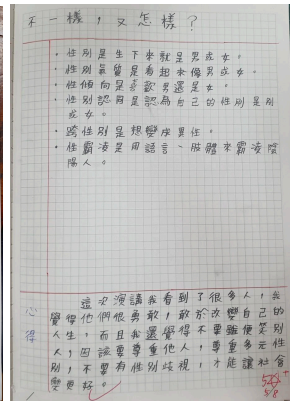 不一樣，又怎樣？
・性別是生下來就是男或女。
・性別氣質是看起來像男或女。
・性傾向是喜歡男還是女。
・性別認同是認為自己的性別是別
或女。
・跨性別是想變成異性。
・性霸凌是用語言、肢體來霸凌陰
陽人。
心得
這次演講我看到了很多人，我
覺得他們很勇敢，敢於改變自己的
人生，而且我還覺得不要隨便笑別
人，因該要尊重他人，尊重多元性
別，不要有性別歧視，才能讓社會
變更好。
5/8